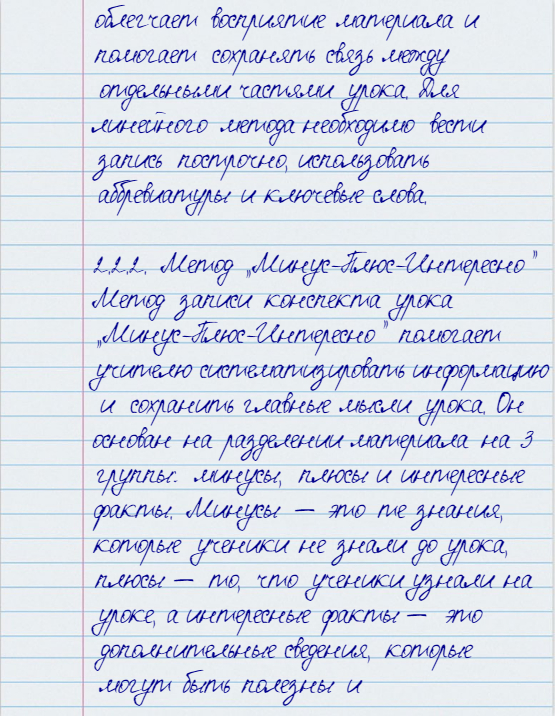 облегчает восприятие материала и
помогает сохранять связь между
отдельными частями урока. Для
линейного метода необходимо вести
запись построчно, использовать
аббревиатуры и ключевые слова.
2.2.2. Метод „Минус-Плюс-Интересно"
Метод записи конспекта урока
„Минус-Плюс-Интересно" помогает
учителю систематизировать информацию
и сохранить главные мысли урока. Он
основан на разделении материала на 3
группы: минусы, плюсы и интересные
факты. Минусы — это те знания,
которые ученики не знали до урока,
плюсы — то, что ученики узнали на
уроке, а интересные факты — это
дополнительные сведения, которые
могут быть полезны и